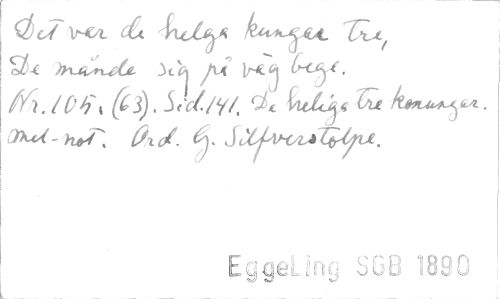 Det var de helga kungar tre,
De månde sig på väg bege.
Nr. 105. (63). Sid. 141. De heliga tre konungar.
Mel-not. Ord. G. Silfverstolpe.
EggeLing SGB 1890